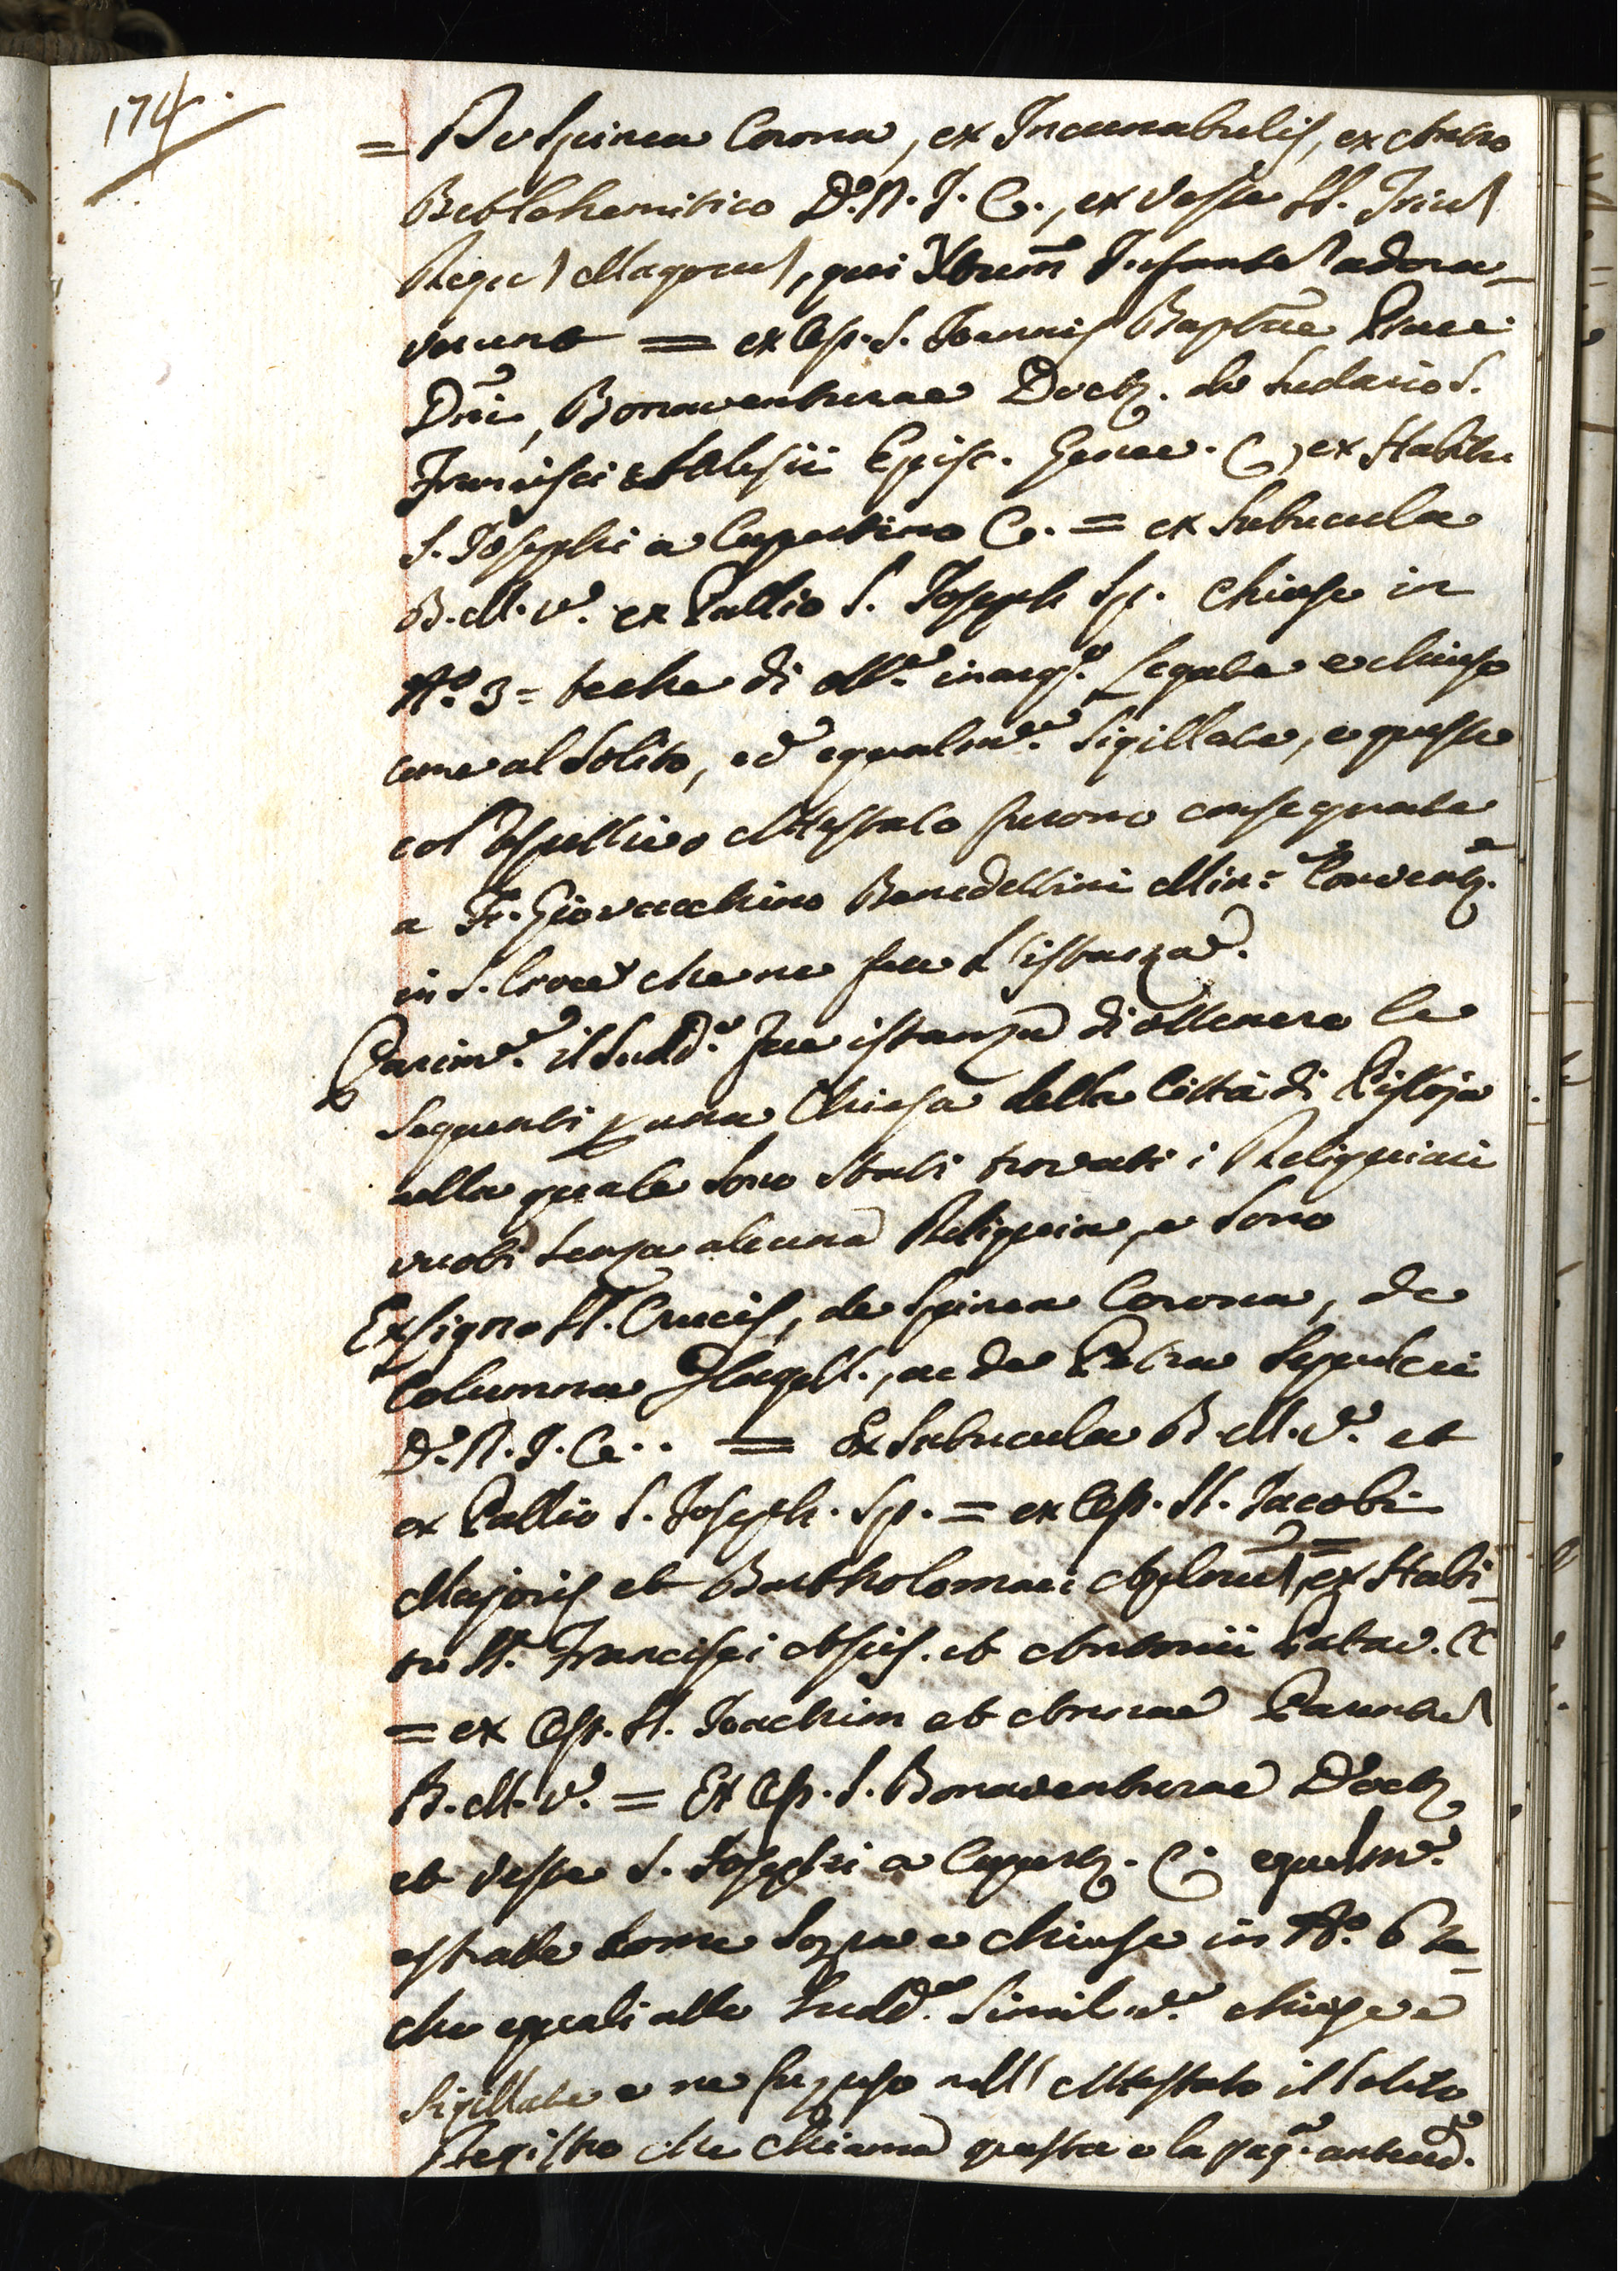 174.
= De Spinea Corona, ex Incunabulis, ex Antro
Bethlehemitico D. N. J. C., ex Veste SS. Trium
Regum Magorum, qui Xtum Infantem adora-
verunt = ex Oss. S. Joannis Baptae Praec.
Dni, Bonaventurae Doct. de Sudario S.
Francisci Salesii Episc. Genev. C, ex Habitu
S. Josephi a Cupertino C. = ex Subucula
B. M. V. ex Pallio S. Joseph Sp. chiuse in
No. 3 = teche di Me. inargo. legate e chiuse
come al solito, ed egualme. sigillate, e queste
col respettivo Attestato furono consegnate
a Fr. Giovacchino Benedettini Min: Convent.
in S. Croce che ne fece l'istanza.
Parime. il Sudd. fece istanza di ottenere le
seguenti per una Chiesa della Città di Pistoja
nella quale sono stati trovati i Reliquiari
vuoti senza alcuna Reliquia, e sono
Ex Ligno SS. Crucis, de Spinea Corona, de
Columna Flagell., ac de Petra Sepulcri
D. N. J. C.. = Ex Subucula B. M. V. et
ex Pallio S. Joseph. Sp. = ex Oss. SS. Jacobi
Majoris et Bartholomaei Aplorum, = ex Habi-
tu SS. Francisci Assis. et Antonii Patav. CC
= ex Oss. SS. Joachim et Annae Parentum
B. M. V. = Ex Oss. S. Bonaventurae Doct
et Veste S. Josephi a Cupert. C. egualme.
estratte come sopra e chiuse in No. 6 te-
che eguali alle Sudde. similme. chiuse e
sigillate e ne fu preso nell' Attestato il solito
Registro che chiama questa e la pag. anteced.